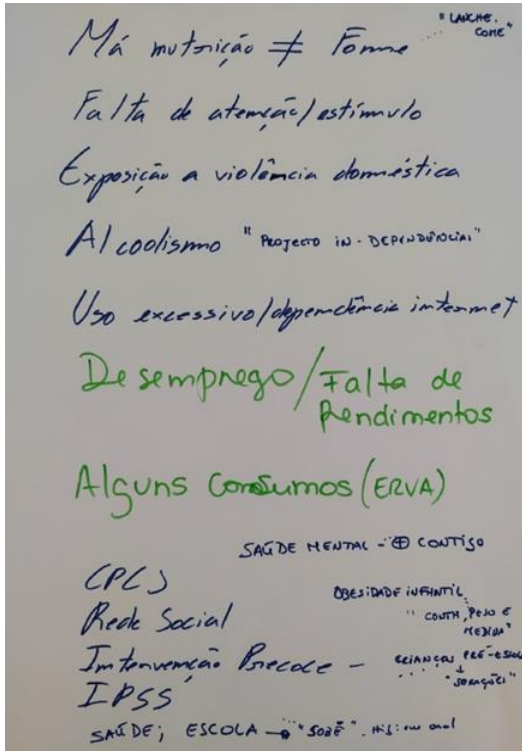 Má nutrição ≠ Fome "LANCHE.
COME"
Falta de atenção/estímulo
Exposição a violência doméstica
Alcoolismo "PROJECTO IN-DEPENDÊNCIAS"
Uso excessivo/dependência internet
Desemprego/Falta de
Rendimentos
Alguns Consumos (ERVA)
SAÚDE MENTAL - ⊕ CONTIGO
CPCJ
OBESIDADE INFANTIL
Rede Social
" CONTA, PESO E
MEDIDA"
Intervenção Precoce - CRIANÇAS PRÉ-ESCOLA
IPSS
SAÚDE; ESCOLA → "SOBE". Higiene oral